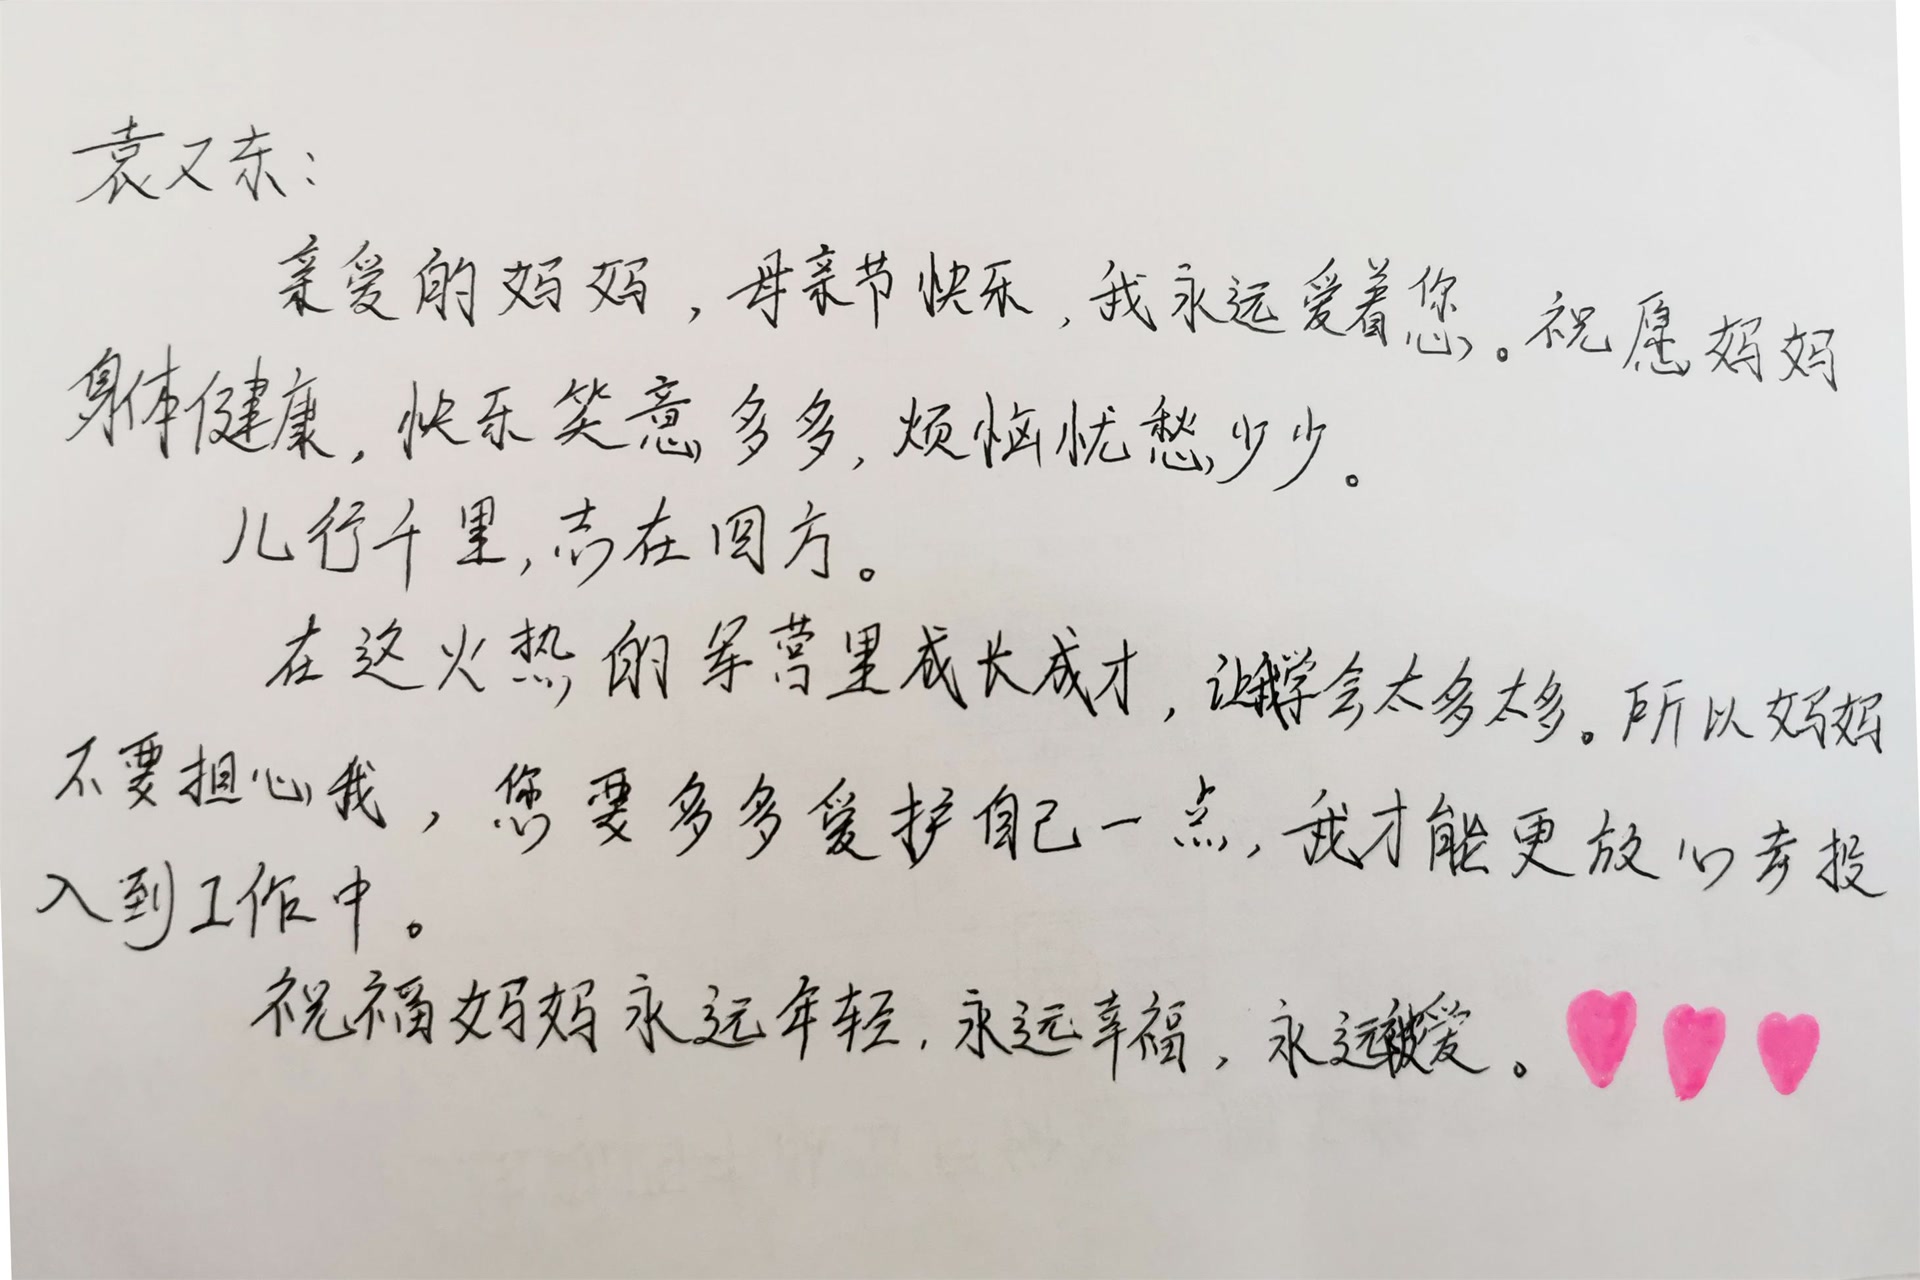 袁又东:
亲爱的妈妈，母亲节快乐，我永远爱着您。祝愿妈妈
身体健康，快乐笑意多多，烦恼忧愁少少。
儿行千里，志在四方。
在这火热的军营里成长成才，让我学会太多太多。所以妈妈
不要担心我，您要多多爱护自己一点，我才能更放心去投
入到工作中。
祝福妈妈永远年轻，永远幸福，永远被爱。